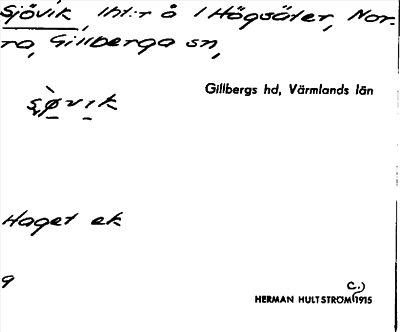 Sjövik, lht:r å 1 Högsäter, Nor-
ra, Gillberga sn,
Gillbergs hd, Värmlands län
Haget ek
9
c.)
HERMAN HULTSTRÖM 1915